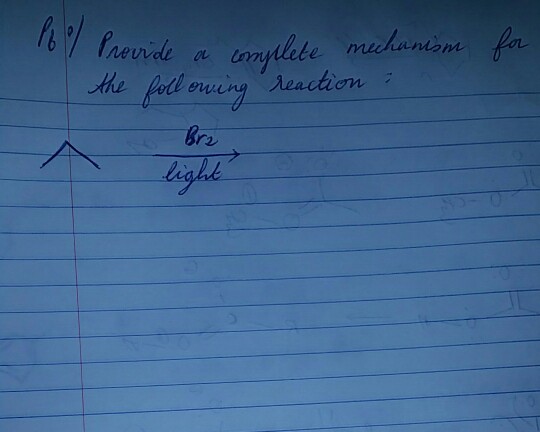 Pb °/ Provide a complete mechanism for
the following reaction :
Br2
light